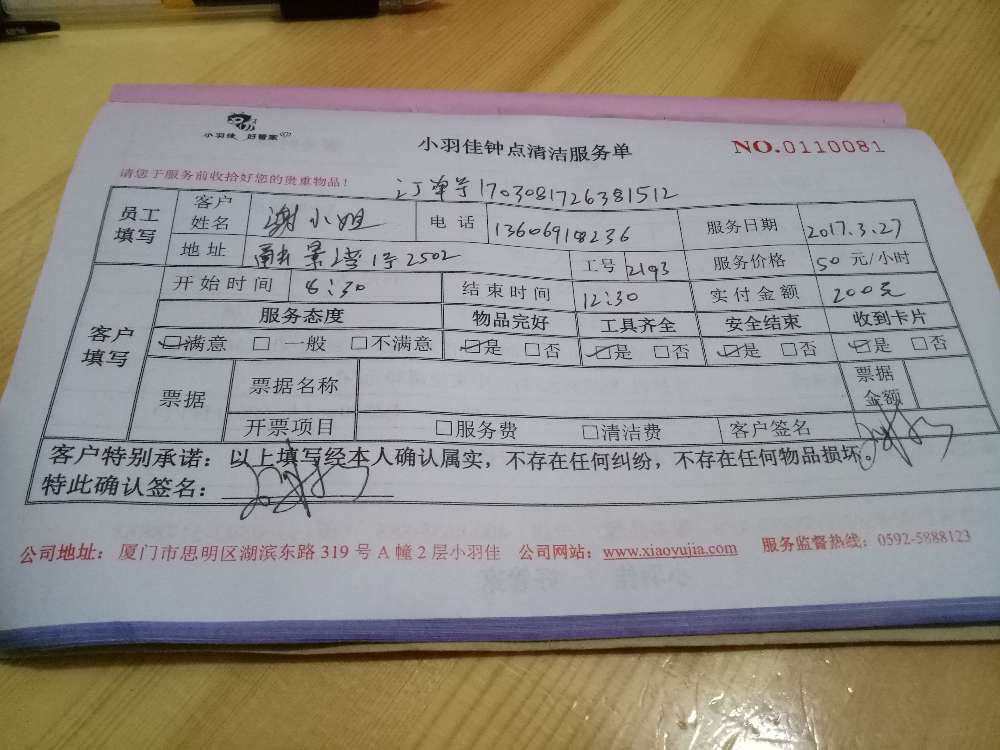 小羽佳 好管家
小羽佳钟点清洁服务单
NO.0110081
请您于服务前收拾好您的贵重物品！
订单号1703081726381512
员工填写 客户姓名 谢小姐 电话 13606918236 服务日期 2017.3.27
地址 景湾1号2502 工号 2193 服务价格 50元/小时
客户填写 开始时间 8:30 结束时间 12:30 实付金额 200元
服务态度 物品完好 工具齐全 安全结束 收到卡片
☑满意 □一般 □不满意 ☑是 □否 ☑是 □否 ☑是 □否 ☑是 □否
票据 票据名称 票据金额
开票项目 □服务费 □清洁费 客户签名
客户特别承诺：以上填写经本人确认属实，不存在任何纠纷，不存在任何物品损坏。
特此确认签名：
公司地址：厦门市思明区湖滨东路319号A幢2层小羽佳 公司网站：www.xiaoyujia.com 服务监督热线：0592-5888123